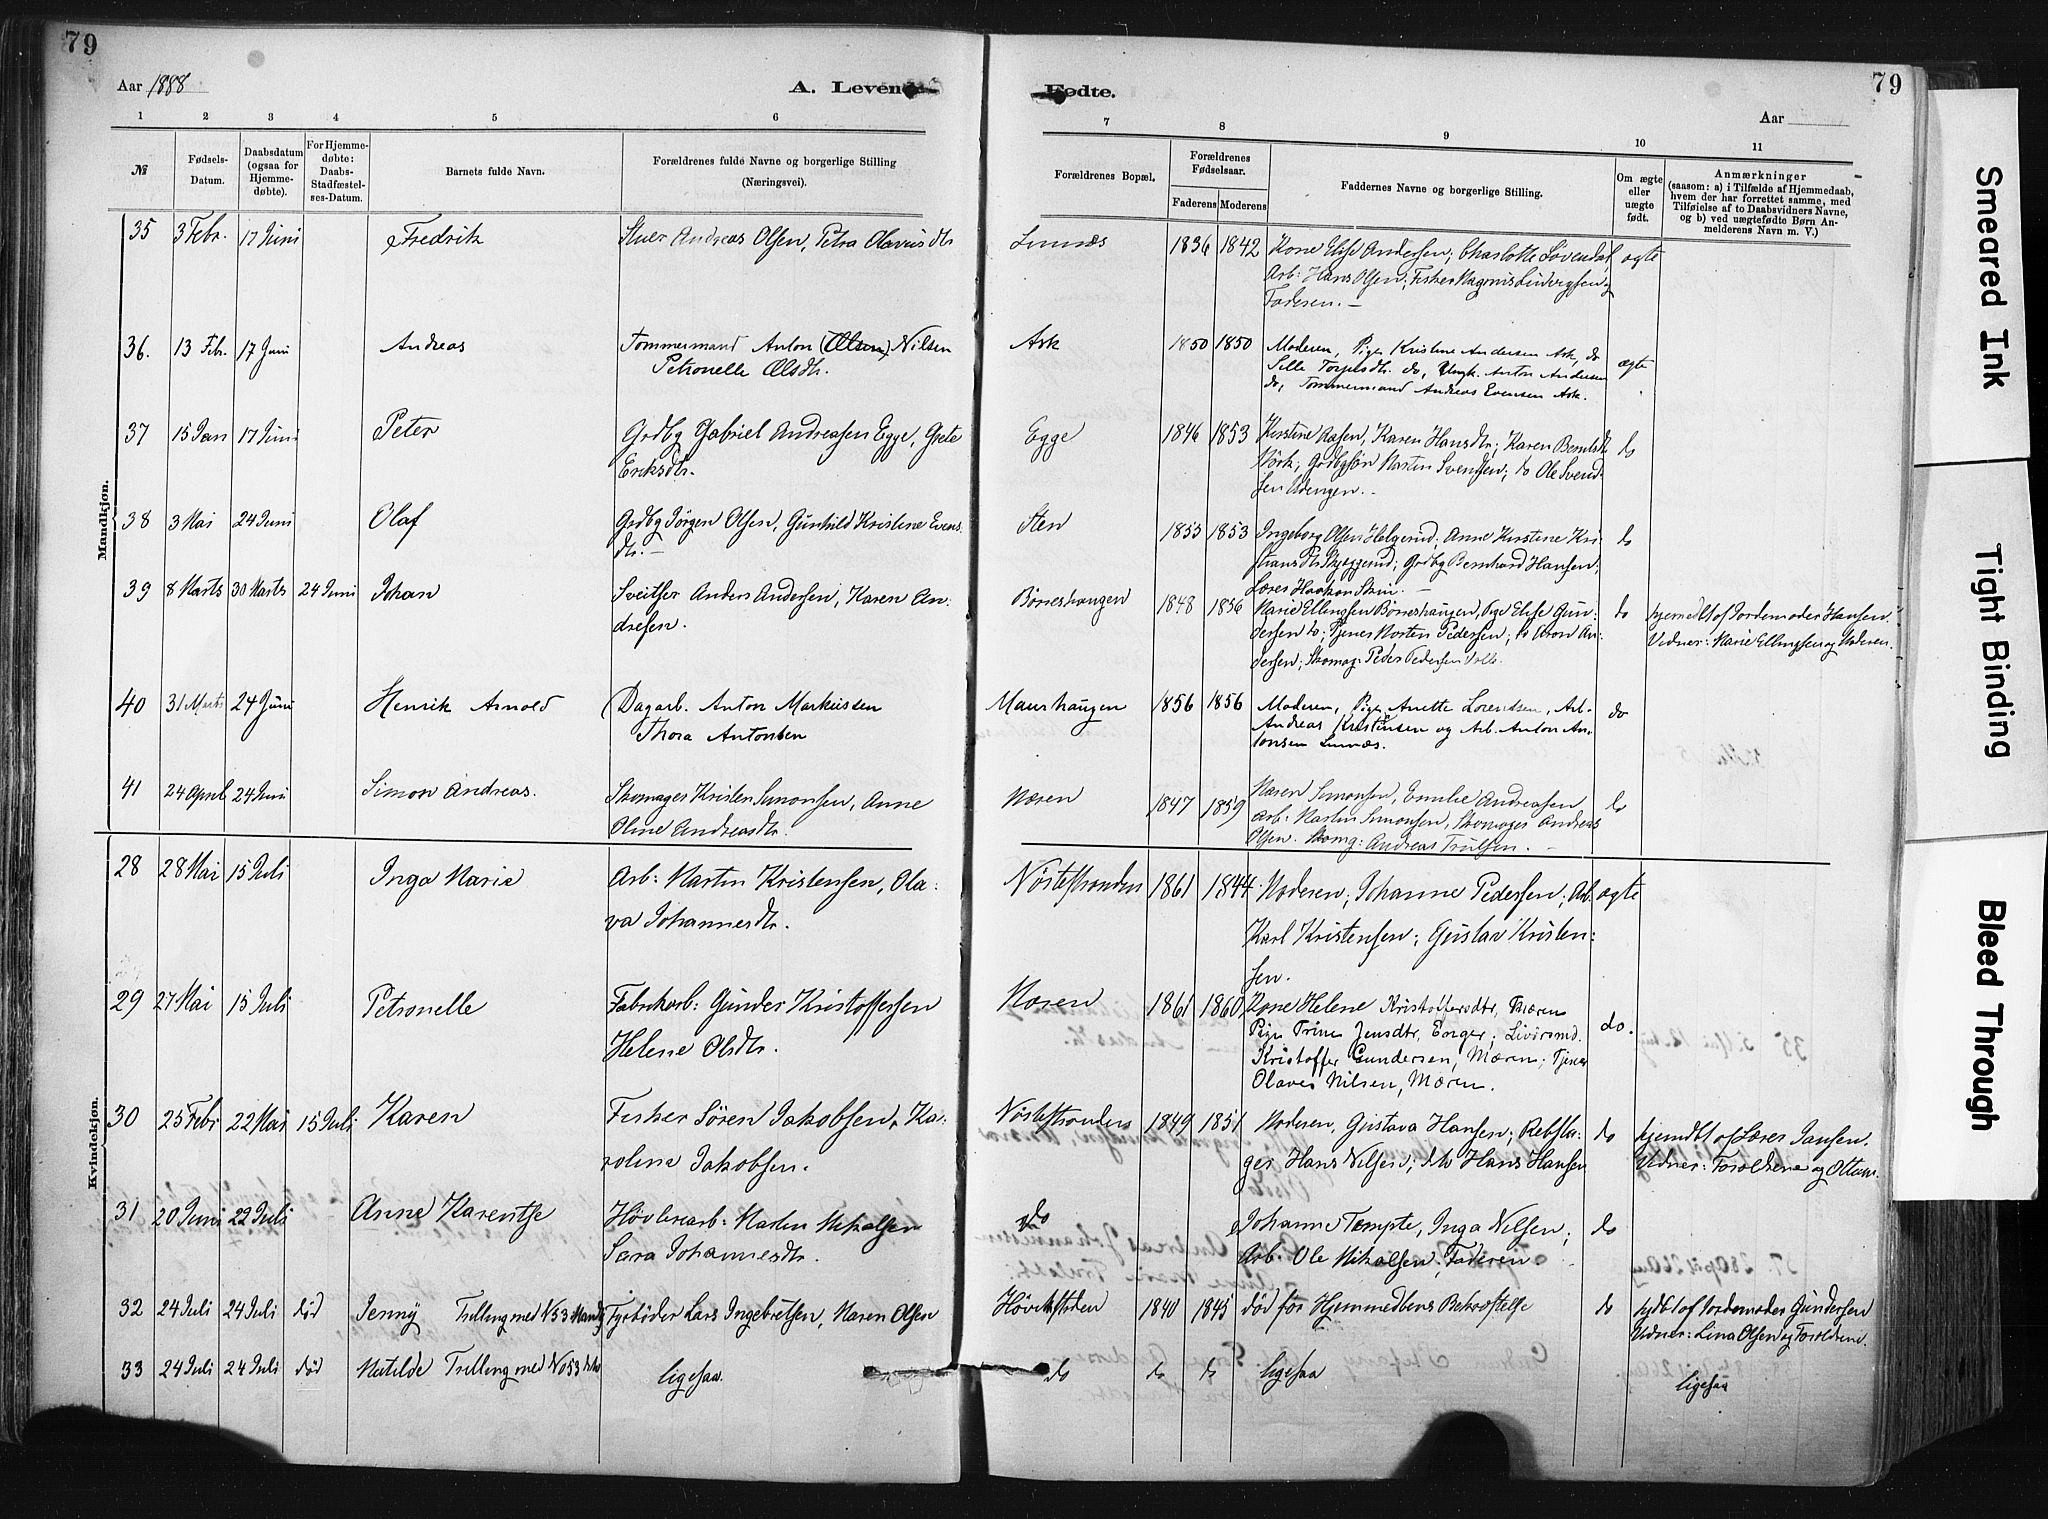 79
79
Aar 1888
A. Levende
Fødte.
Aar
1 2 3 4 5 6 7 8 9 10 11
№
Fødsels-
Datum.
Daabsdatum
(ogsaa for
Hjemme-
døbte).
For Hjemme-
døbte:
Daabs-
Stadfæstel-
ses-Datum.
Barnets fulde Navn.
Forældrenes fulde Navne og borgerlige Stilling
(Næringsvei).
Forældrenes Bopæl.
Forældrenes
Fødselsaar.
Faderens Moderens
Faddernes Navne og borgerlige Stilling.
Om ægte
eller
uægte
født.
Anmærkninger
(saasom: a) i Tilfælde af Hjemmedaab,
hvem der har forrettet samme, med
Tilføielse af to Daabsvidners Navne,
og b) ved uægtefødte Børn An-
melderens Navn m. V.)
Mandkjøn.
35 3 Febr. 17 Juni Fredrik Andreas Olsen, Petra Olavusdtr Lunæs 1836 1842 Kone Elise Andersen; Charlotte Lövendal, ægte
Arb: Hans Olsen; Fisker Magnus Lindergsen og
Faderen. —
36. 13 Febr. 17 Juni Andreas Tømmermand Anton (Olsen) Nilsen Ask 1850 1850 Moderen, Pige Kristine Andersen Ask, do ægte
Petronelle Olsdtr. Sille Torjusdtr. do, Ungk. Anton Andersen
do, Tømmermand Andreas Evensen Ask.
37 15 Jan 17 Juni Peter Grdbg Gabriel Andreasen Egge, Grete Egge 1846 1853 Kirstine Aasen, Karen Hansdtr; Karen Berntsdtr do
Eriksdtr. Mörk; Grdbgsön Martin Svendsen; do Ole Svend-
sen Udengen. -
38 3 Mai 24 Juni Olaf Grdbg Jørgen Olsen, Gunhild Kristine Evens- Sten 1853 1853 Ingeborg Olsen Helgerud; Anne Kirstine Kri- do
dtr. — stiansdtr Skjeggerud; Grdbg Bernhard Hansen;
Lærer Haakon Stein. —
39 8 Marts 30 Marts 24 Juni Johan Sveitser Anders Andersen, Karen An- Börreshaugen 1848 1856 Marie Ellingsen Börreshaugen, Pige Elise Gun- do hjemmedbt af Jordemoder Hansen.
dresen. dersen do; Tjener Morten Pedersen; do Aron An- Vidner: Marie Ellingsen og Moderen.
dersen; Skomag: Peder Pedersen
40 31 Marts 24 Juni Henrik Arnold Dagarb. Anton Markussen Maurhaugen 1856 1856 Moderen, Pige Anette Lorentsen, Arb. do
Thora Antonsen Andreas Kristensen og Arb. Anton An-
tonsen Lunæs.
41 24 April 24 Juni Simon Andreas. Skomager Kristen Simonsen, Anne Næren 1847 1859 Maren Simonsen, Emilie Andreasen do
Oline Andreasdtr. Arb: Martin Simonsen, Skomager Andreas
Olsen. Skomg: Andreas Trulsen. —
Kvindekjøn.
28 28 Mai 15 Juli Inga Marie Arb: Martin Kristensen, Ola- Nöstestranden 1861 1844 Moderen; Johanne Pedersen; Arb. ægte
va Johannesdtr. Karl Kristensen; Gustav Kristen-
sen.
29 27 Mai 15 Juli Petronelle Fabrikarb: Gunder Kristoffersen Næren 1861 1860 Kone Helene Kristoffersdtr, Mæren do.
Helene Olsdtr. Pige Trine Jensdtr, Enger;
Kristoffer Gundersen, Mæren; Tjener
Olaves Nilsen, Mæren.
30 25 Febr 22 Mai 15 Juli Karen Fisker Sören Jakobsen, Ka- Nöstestranden 1849 1851 Moderen, Gustava Hansen; Rebsla- do hjemdbt af Lærer Jansen.
roline Jakobsen. ger Hans Nilsen; do Hans Hansen Vidner: Forældrene og
31 20 Juni 22 Juli Anne Karentse Hövleriarb: Martin Mikalsen do Johanne Tempte, Inga Nilsen; do
Sara Johannesdtr. Arb. Ole Mikalsen, Faderen.
32 24 Juli 24 Juli död Jenny Trilling med N 53 Mandkj Fyrböder Lars Ingebretsen, Maren Olsen Hövikstöden 1840 1845 död för Hjemmedbens Bekræftelse do hjdbt af Jordemoder Gundersen
Vidner: Lina Olsen og Forældrene.
33 24 Juli 24 Juli död Matilde Trilling med No 53 ligesaa. do do do ligesaa ligesaa
Smeared Ink
Tight Binding
Bleed Through